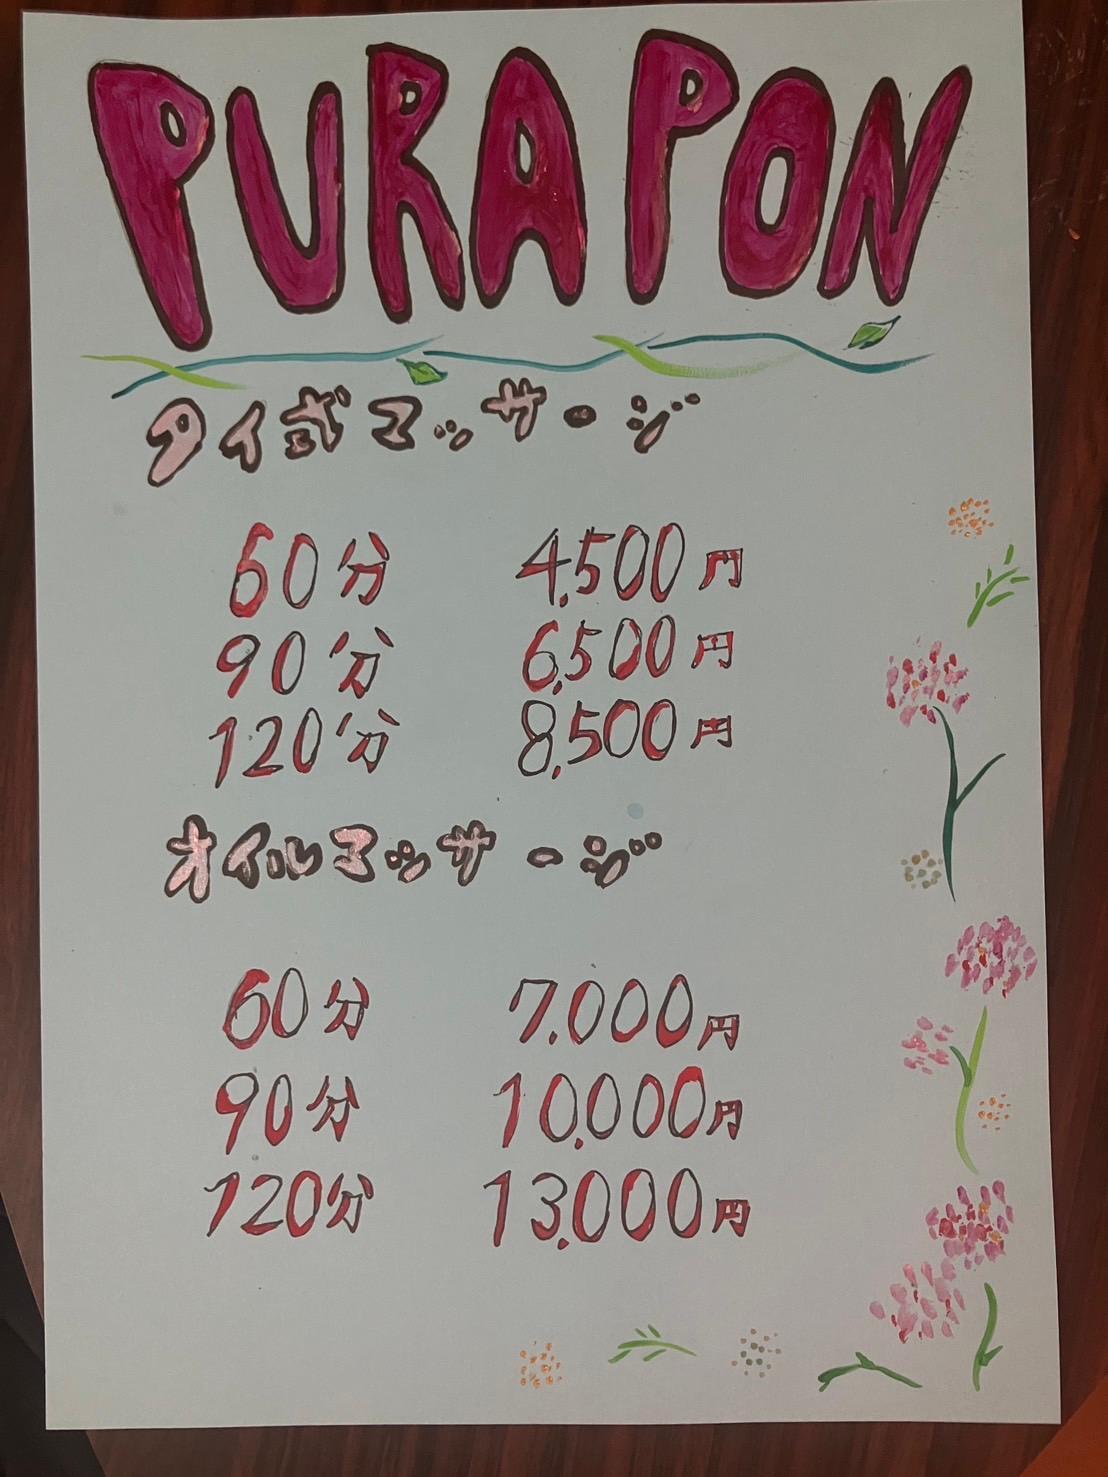 PURAPON
タイ式マッサージ
60分 4,500円
90分 6,500円
120分 8,500円
オイルマッサージ
60分 7,000円
90分 10,000円
120分 13,000円